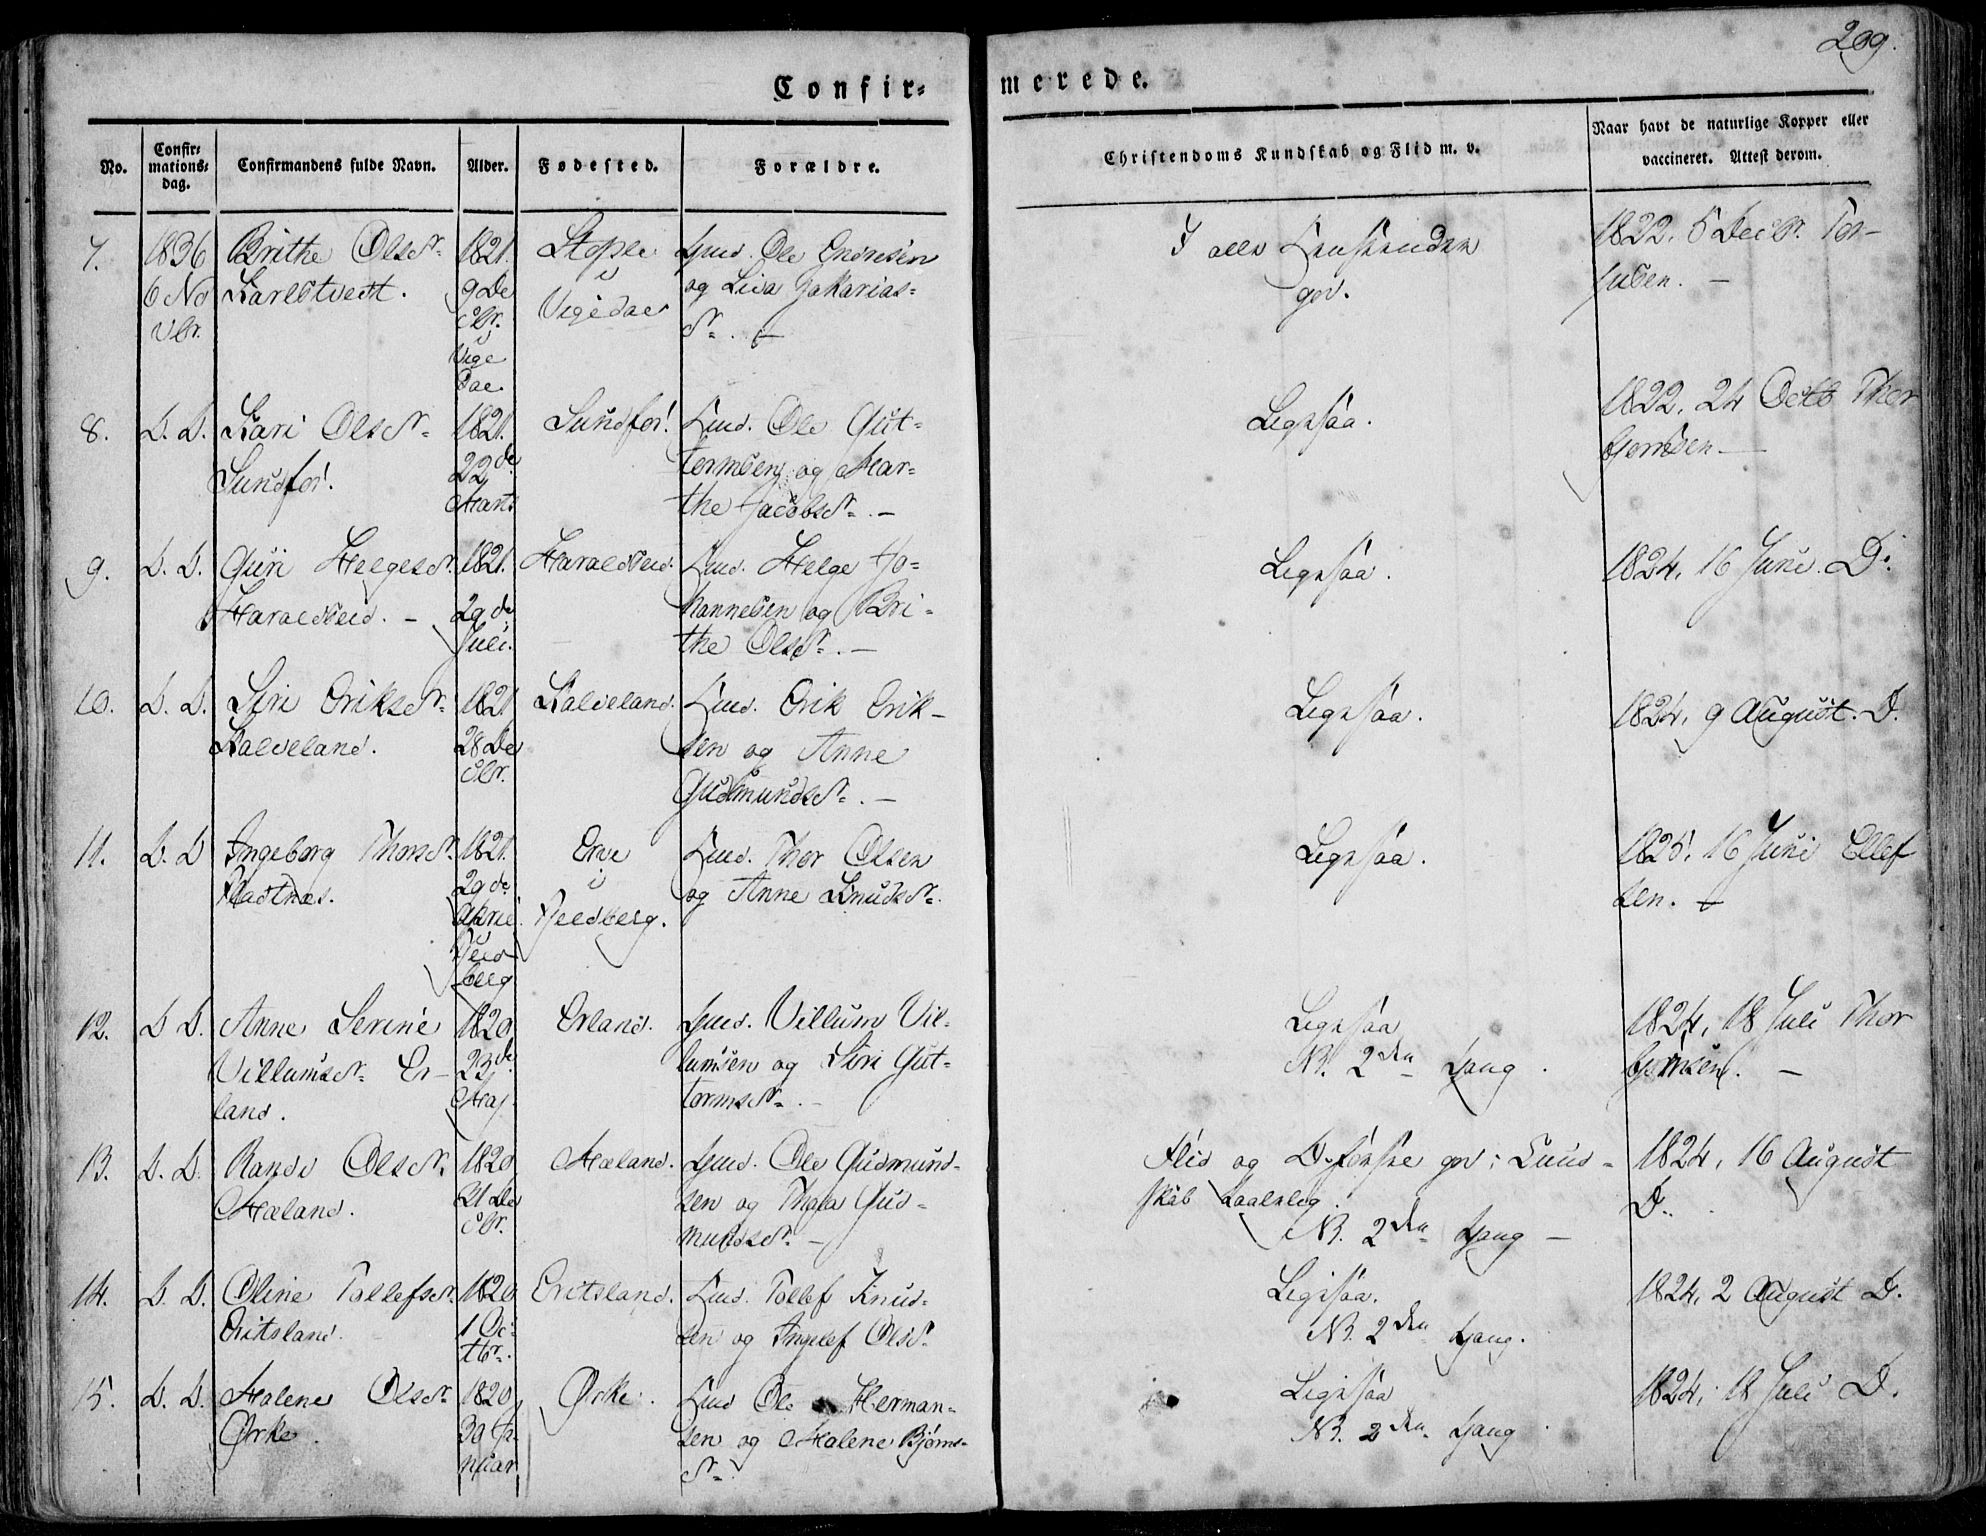 209.
Confir-
merede.
No.
Confir-
mations-
dag.
Confirmandens fulde Navn.
Alder.
Fødested.
Forældre.
Christendoms Kundskab og Flid m. v.
Naar havt de naturlige Kopper eller
vaccineret. Attest derom.
7.
1836
6 No
vbr.
Brithe Olsdr.
1821.
9 De
cbr.
i
Vige
dal
i
Vigedal
Gmd. Ole
og Jakarias-
dr. -
I alle Henseender
god.
1822, 5 Decbr. Tor-
8.
D. D.
Kari Olsdr.
Sundfor.
1821.
22de
Marts
Sundfor.
Hmd. Ole Gut-
tormsen og Mar-
the Jacobsdr. -
Ligesaa.
1822, 24 Octb Thor
9.
D. D.
Guri Helgesdr.
Haraldseid. -
1821.
29de
Juli.
Haraldseid.
Hmd. Helge Jo-
hannesen og Bri-
the Olsdr. -
Ligesaa.
1824, 16 Juni. D.
10.
D. D.
Siri Eriksdr.
Kalveland.
1821
28 De
cbr.
Kalveland.
Hmd. Erik Erik-
sen og Anne
Gudmundsdr. -
Ligesaa.
1824, 9 August. D.
11.
D. D
Ingeborg Thorsdr.
1821.
29de
April
i
berg
i
Hmd. Thor Olsen
og Anne Knudsdr.
Ligesaa.
1825, 16 Juni Ellef
sen. -
12.
D D.
Anne Serine
Villumsdr. Er-
land.
1820
23de
Maj.
Erland.
Gmd. Villum Vil-
lumsen og Siri Gut-
tormsdr. -
Ligesaa
NB. 2den Gang.
1824, 18 Juli Thor
13.
D. D.
Randi Olsdr.
Mæland.
1820
21 De
cbr.
Mæland.
Gmd. Ole Gudmund-
sen og Gud-
mundsdr. -
Flid og Opførsel god; Kund-
skab taalelig.
NB. 2den Gang -
1824, 16 August
D.
14.
D. D.
Oline Tollefsdr.
1820
1 Oc-
tbr.
Hmd. Tollef Knud-
sen og Olsdr.
Ligesaa.
NB. 2den Gang.
1824, 2 August D.
15.
D. D.
Malene Olsdr.
Ørke.
1820
30 Ja-
nuar
Ørke.
Hmd Ole Herman-
sen og Malene Bjørns-
dr.
Ligesaa
NB. 2den Gang
1824, 18 Juli D.